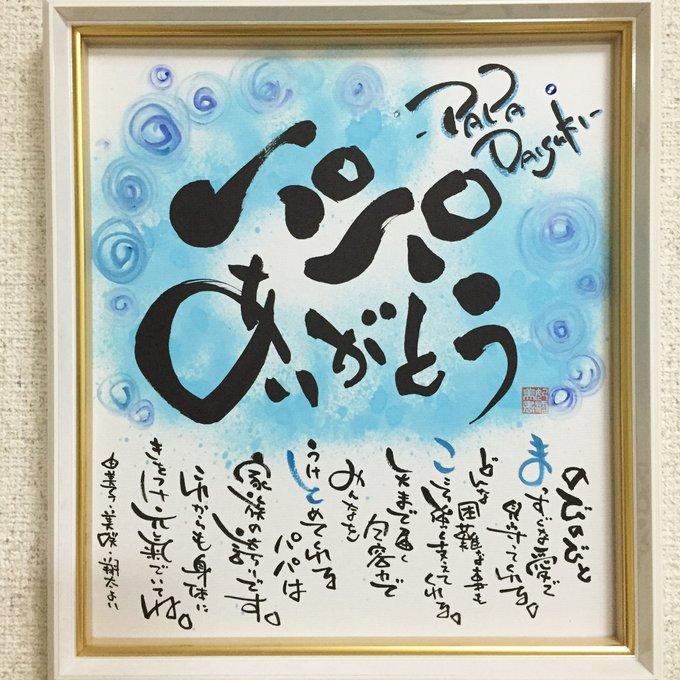 -PAPA
Daisuki-
パパ
ありがとう
のびのびと
まっすぐな愛で
見守ってくれる。
どんな
困難な事も
こころ強く支えてくれる。
まで届く
包容力で
みんなを
うけとめてくれる
パパは
家族の
です。
これからも身体に
きをつけ元気でいてね
美咲・翔太より